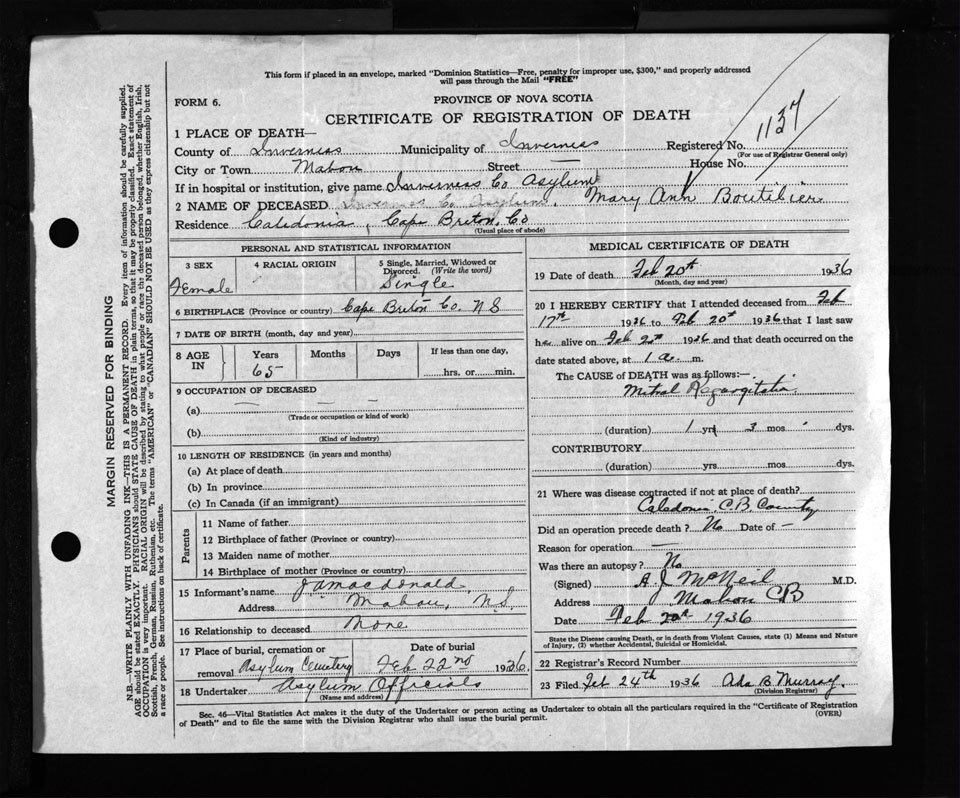 This form if placed in an envelope, marked "Dominion Statistics—Free, penalty for improper use, $300," and properly addressed
will pass through the Mail "FREE"
FORM 6.
PROVINCE OF NOVA SCOTIA
CERTIFICATE OF REGISTRATION OF DEATH
1137
1 PLACE OF DEATH—
County of Inverness Municipality of Inverness Registered No.
(For use of Registrar General only)
City or Town Mabou Street — House No.
If in hospital or institution, give name Inverness Co Asylum
2 NAME OF DECEASED Inverness Co Asylum, Mary Ann Boutilier
Residence Caledonia, Cape Breton Co
(Usual place of abode)
PERSONAL AND STATISTICAL INFORMATION
3 SEX 4 RACIAL ORIGIN 5 Single, Married, Widowed or
Divorced. (Write the word)
Female Single
6 BIRTHPLACE (Province or country) Cape Breton Co. N S
7 DATE OF BIRTH (month, day and year)
8 AGE IN Years Months Days If less than one day,
65 hrs. or min.
9 OCCUPATION OF DECEASED
(a) — — —
(Trade or occupation or kind of work)
(b)
(Kind of industry)
10 LENGTH OF RESIDENCE (in years and months)
(a) At place of death
(b) In province
(c) In Canada (if an immigrant)
Parents
11 Name of father
12 Birthplace of father (Province or country)
13 Maiden name of mother
14 Birthplace of mother (Province or country)
15 Informant's name J A Macdonald
Address Mabou, N.S.
16 Relationship to deceased None
17 Place of burial, cremation or Date of burial
removal Asylum Cemetery Feb 22nd 1936
18 Undertaker Asylum Officials
(Name and address)
MEDICAL CERTIFICATE OF DEATH
19 Date of death Feb 20th 1936
(Month, day and year)
20 I HEREBY CERTIFY that I attended deceased from Feb
17th 1936 to Feb 20th 1936 that I last saw
her alive on Feb 20th 1936 and that death occurred on the
date stated above, at 1 a. m.
The CAUSE of DEATH was as follows:—
Mitral Regurgitation
(duration) 1 yrs 3 mos dys.
CONTRIBUTORY
(duration) yrs mos dys.
21 Where was disease contracted if not at place of death?
Caledonia C.B County
Did an operation precede death? No Date of —
Reason for operation —
Was there an autopsy? No
(Signed) A. J McNeil M.D.
Address Mabou CB
Date Feb 20th 1936
State the Disease causing Death, or in death from Violent Causes, state (1) Means and Nature
of Injury, (2) whether Accidental, Suicidal or Homicidal.
22 Registrar's Record Number
23 Filed Feb 24th 1936 Ada B Murray.
(Division Registrar)
Sec. 46—Vital Statistics Act makes it the duty of the Undertaker or person acting as Undertaker to obtain all the particulars required in the "Certificate of Registration
of Death" and to file the same with the Division Registrar who shall issue the burial permit. (OVER)
MARGIN RESERVED FOR BINDING
N.B.—WRITE PLAINLY WITH UNFADING INK—THIS IS A PERMANENT RECORD. Every item of information should be carefully supplied.
AGE should be stated EXACTLY. PHYSICIANS should STATE CAUSE OF DEATH in plain terms, so that it may be properly classified. Exact statement of
OCCUPATION is very important. RACIAL ORIGIN will be described by stating to what people or race the deceased person belonged, whether English, Irish,
Scottish, French, German, Russian, Ruthenian, etc. The terms "AMERICAN" or "CANADIAN" SHOULD NOT BE USED as they express citizenship but not
a race or people. See instructions on back of certificate.